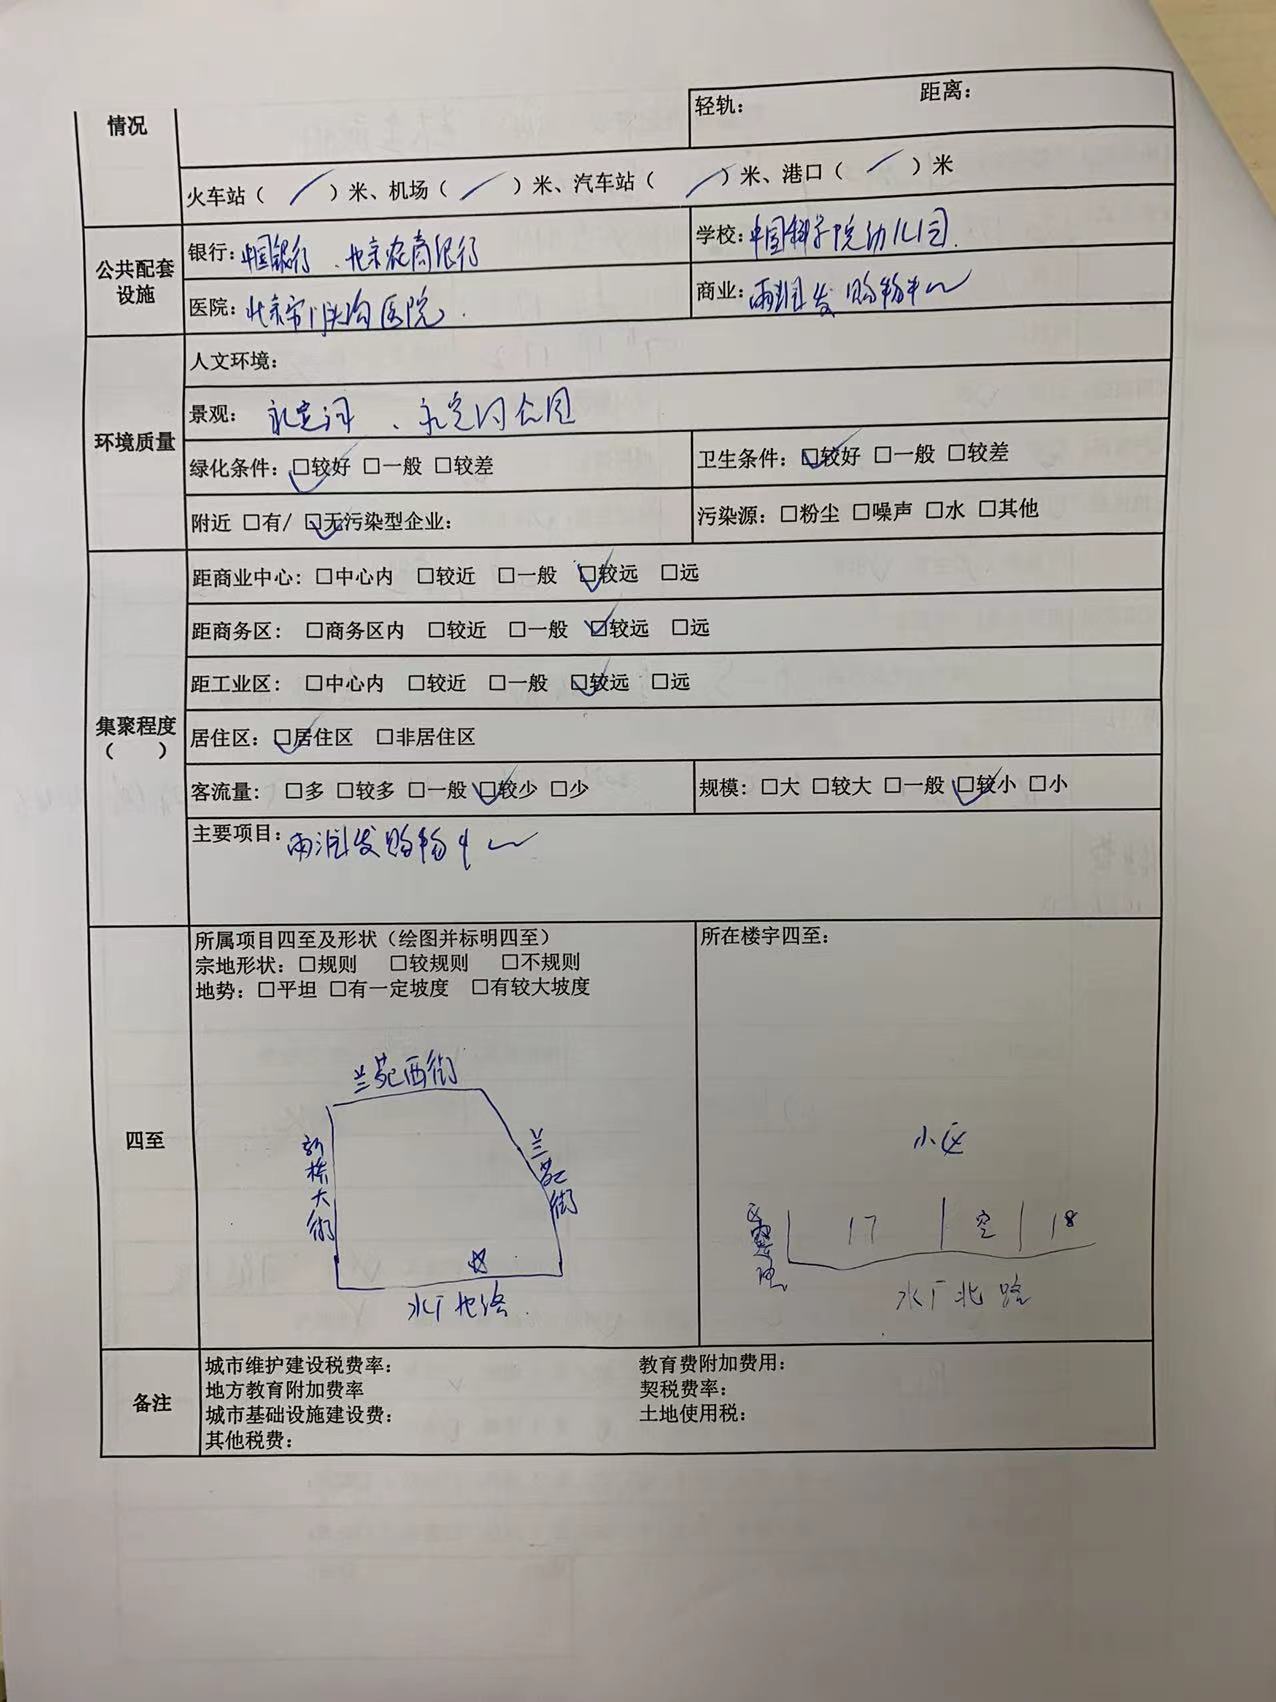 情况
轻轨： 距离：
火车站（ ）米、机场（ ）米、汽车站（ ）米、港口（ ）米
公共配套设施
银行：中国银行、北京农商银行
学校：中国科学院幼儿园.
医院：北京市门头沟医院.
商业：雨润发购物中心
环境质量
人文环境：
景观：永定河、永定河公园
绿化条件：☑较好 □一般 □较差
卫生条件：☑较好 □一般 □较差
附近 □有/ ☑无污染型企业：
污染源：□粉尘 □噪声 □水 □其他
集聚程度（ ）
距商业中心：□中心内 □较近 □一般 ☑较远 □远
距商务区： □商务区内 □较近 □一般 ☑较远 □远
距工业区： □中心内 □较近 □一般 ☑较远 □远
居住区：☑居住区 □非居住区
客流量： □多 □较多 □一般 ☑较少 □少
规模：□大 □较大 □一般 ☑较小 □小
主要项目：雨润发购物中心
四至
所属项目四至及形状（绘图并标明四至）
宗地形状：□规则 □较规则 □不规则
地势：□平坦 □有一定坡度 □有较大坡度
兰苑西街
新桥大街
兰苑街
水厂北路
所在楼宇四至：
小区
17 空 18
水厂北路
备注
城市维护建设税费率： 教育费附加费用：
地方教育附加费率 契税费率：
城市基础设施建设费： 土地使用税：
其他税费：